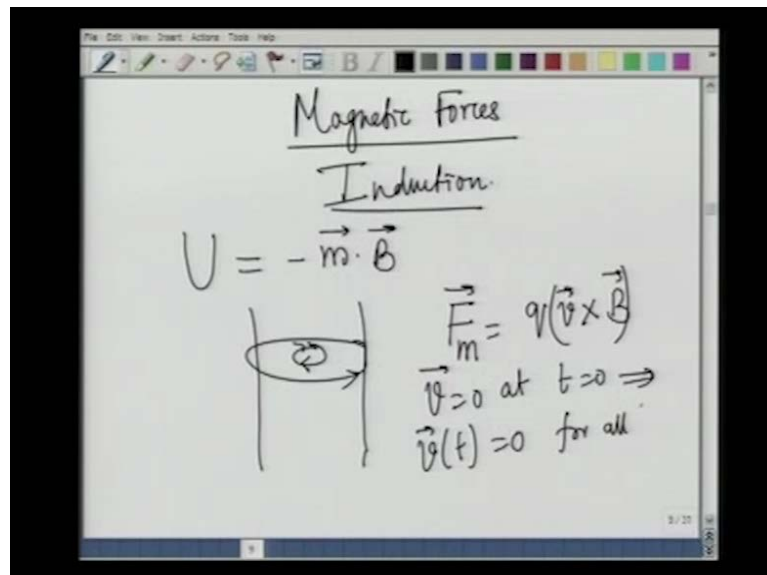 File Edit View Insert Actions Tools Help
B I
Magnetic Forces
Induction.
U = - m⃗ · B⃗
F⃗m = q(v⃗ × B⃗)
v⃗ = 0 at t=0 ⇒
v⃗(t) = 0 for all
9